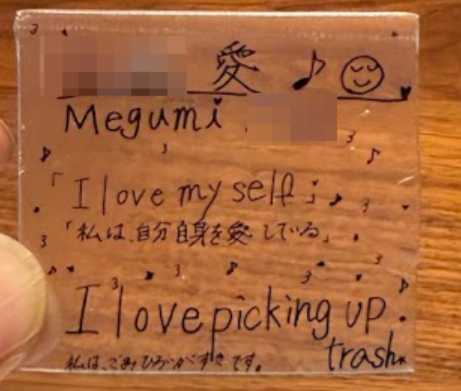 愛
Megumi
「I love my self」
「私は、自分自身を愛している」
I love picking up
trash
私は、ごみひろいがすきです。